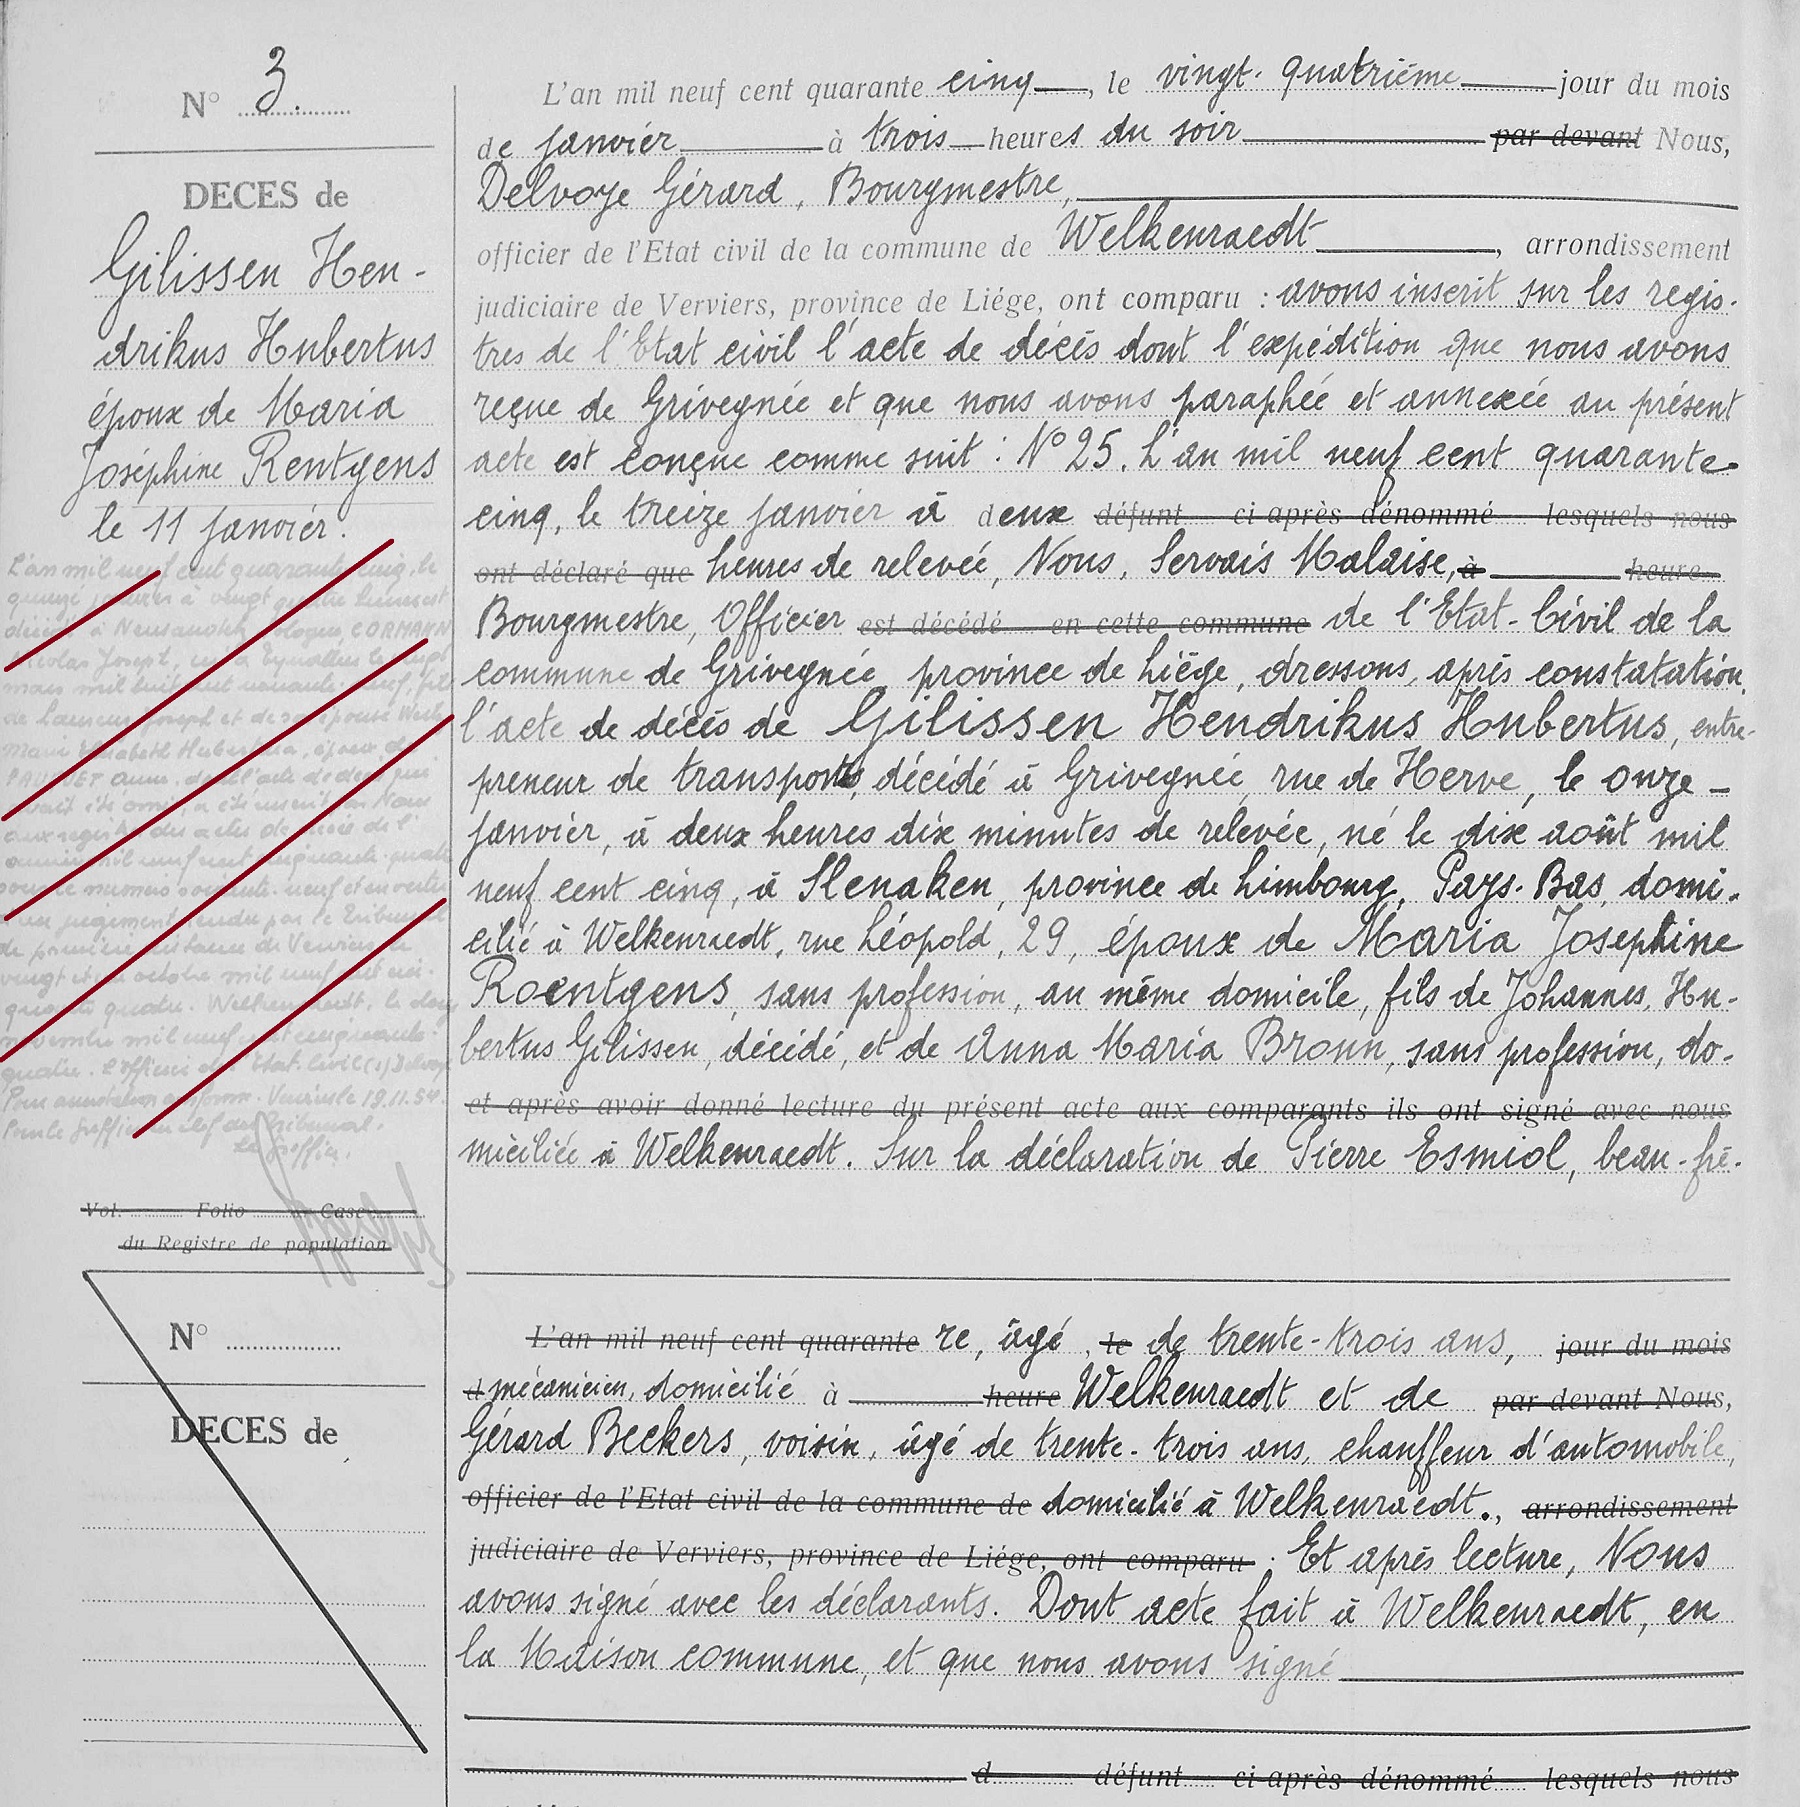 N° 3.
DECES de
Gilissen Hen-
drikus Hubertus
époux de Maria
Joséphine Rentgens
le 11 janvier.
L'an mil neuf cent quarante cinq, le
quinze janvier à vingt quatre heures est
décédé à Pologne, CORMANN
Nicolas Joseph, né à le vingt
mars mil huit cent nonante-neuf, fils
de Joseph et de son épouse
Marie Elisabeth Hubertina, époux de
PAUQUET Anna. dont l'acte de décès qui
avait été omis, a été inscrit par Nous
aux registres des actes de décès de l'
année mil neuf cent cinquante-quatre
sous le numéro soixante-neuf et en vertu
d'un jugement rendu par le Tribunal
de première instance de Verviers le
vingt et un octobre mil neuf cent cin-
quante quatre. Welkenraedt, le
novembre mil neuf cent cinquante-
quatre. L'officier de l'Etat-Civil (s)
Pour annotation conforme. Verviers le 19.11.54.
Pour le greffier en chef du Tribunal.
Le greffier.
Vol. Folio Case
du Registre de population
L'an mil neuf cent quarante cinq, le vingt-quatrième jour du mois
de janvier à trois heures du soir par devant Nous,
Delvoye Gérard, Bourgmestre,
officier de l'Etat civil de la commune de Welkenraedt, arrondissement
judiciaire de Verviers, province de Liége, ont comparu : avons inscrit sur les regis-
tres de l'Etat civil l'acte de décès dont l'expédition que nous avons
reçue de Grivegnée et que nous avons paraphée et annexée au présent
acte est conçue comme suit : N° 25. L'an mil neuf cent quarante-
cinq, le treize janvier à deux défunt ci-après dénommé lesquels nous
ont déclaré que heures de relevée, Nous, Servais Malaise, à heure
Bourgmestre, Officier est décédé en cette commune de l'Etat-Civil de la
commune de Grivegnée, province de Liège, dressons, après constatation,
l'acte de décès de Gilissen Hendrikus Hubertus, entre-
preneur de transports, décédé à Grivegnée, rue de Herve, le onze
janvier, à deux heures dix minutes de relevée, né le dix août mil
neuf cent cinq, à Slenaken, province de Limbourg, Pays-Bas, domi-
cilié à Welkenraedt, rue Léopold, 29, époux de Maria Josephine
Roentgens, sans profession, au même domicile, fils de Johannes, Hu-
bertus Gilissen, décédé, et de Anna Maria Broun, sans profession, do-
et après avoir donné lecture du présent acte aux comparants ils ont signé avec nous
miciliée à Welkenraedt. Sur la déclaration de Pierre Esmiol, beau-frè-
N°
DECES de
L'an mil neuf cent quarante re, âgé, le de trente-trois ans, jour du mois
d mécanicien, domicilié à heure Welkenraedt et de par devant Nous,
Gérard Beckers, voisin, âgé de trente-trois ans, chauffeur d'automobile,
officier de l'Etat civil de la commune de domicilié à Welkenraedt., arrondissement
judiciaire de Verviers, province de Liége, ont comparu : Et après lecture, Nous
avons signé avec les déclarants. Dont acte fait à Welkenraedt, en
la Maison commune, et que nous avons signé
d défunt ci-après dénommé lesquels nous